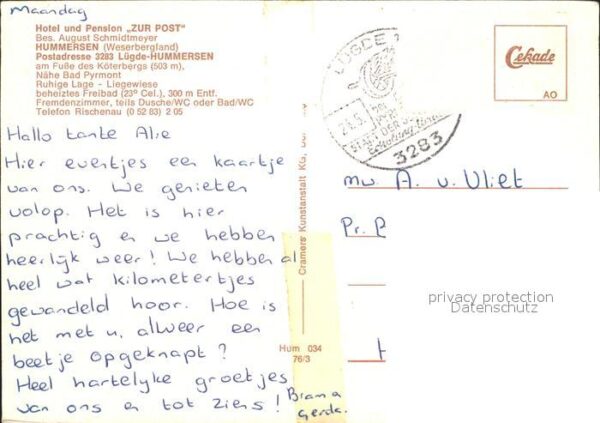 Maandag
Hotel und Pension „ZUR POST"
Bes. August Schmidtmeyer
HUMMERSEN (Weserbergland)
Postadresse 3283 Lügde-HUMMERSEN
am Fuße des Köterbergs (503 m),
Nähe Bad Pyrmont
Ruhige Lage - Liegewiese
beheiztes Freibad (23° Cel.), 300 m Entf.
Fremdenzimmer, teils Dusche/WC oder Bad/WC
Telefon Rischenau (0 52 83) 2 05
Hallo tante Alie
Hier eventjes een kaartje
van ons. We genieten
volop. Het is hier
prachtig en we hebben
heerlijk weer! We hebben al
heel wat kilometertjes
gewandeld hoor. Hoe is
het met u, alweer een
beetje opgeknapt?
Heel hartelyke groetjes
van ons en tot ziens! Bram en
Gerda.
Cramers Kunstanstalt KG,
Hum 034
76/3
LÜGDE
STADT DER
3283
Cekade
AO
mw A. v. Vliet
Pr. P
privacy protection
Datenschutz